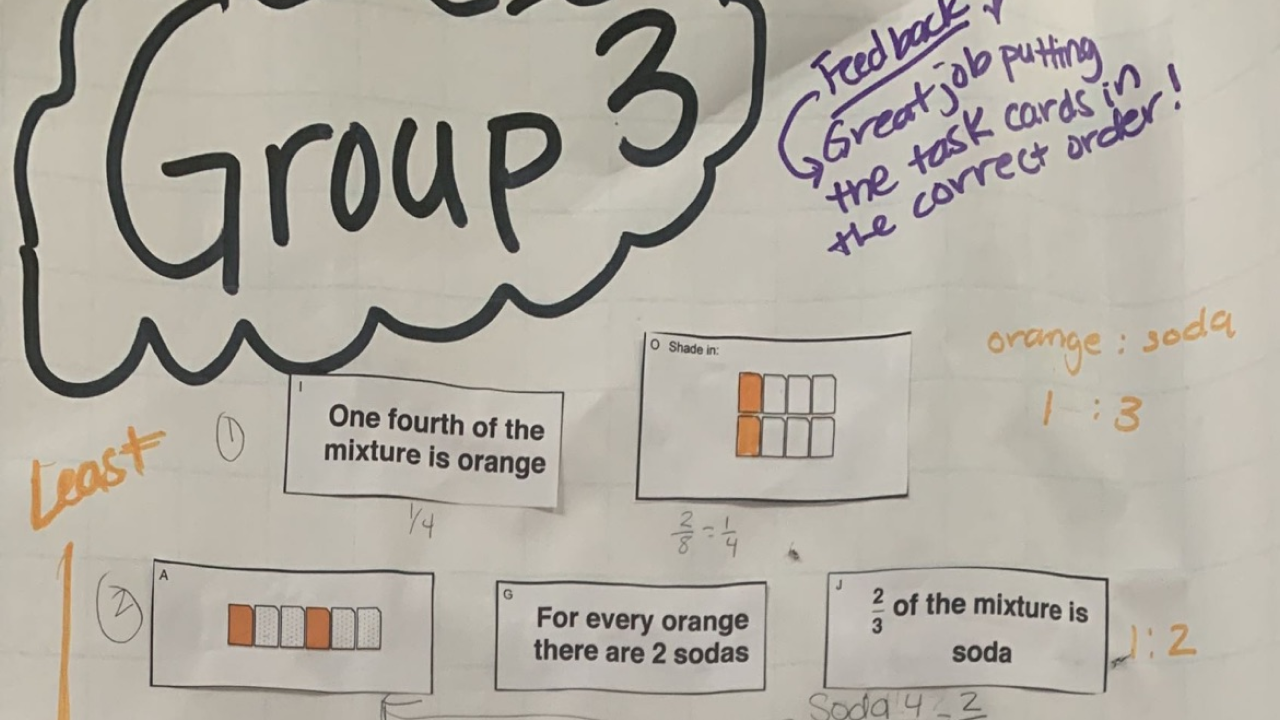 Group 3
Feedback
Great job putting
the task cards in
the correct order!
orange : soda
1 : 3
Least
1
I
One fourth of the
mixture is orange
1/4
O Shade in:
2/8 = 1/4
2
A
G
For every orange
there are 2 sodas
J
2/3 of the mixture is
soda
1:2
Soda 4 = 2